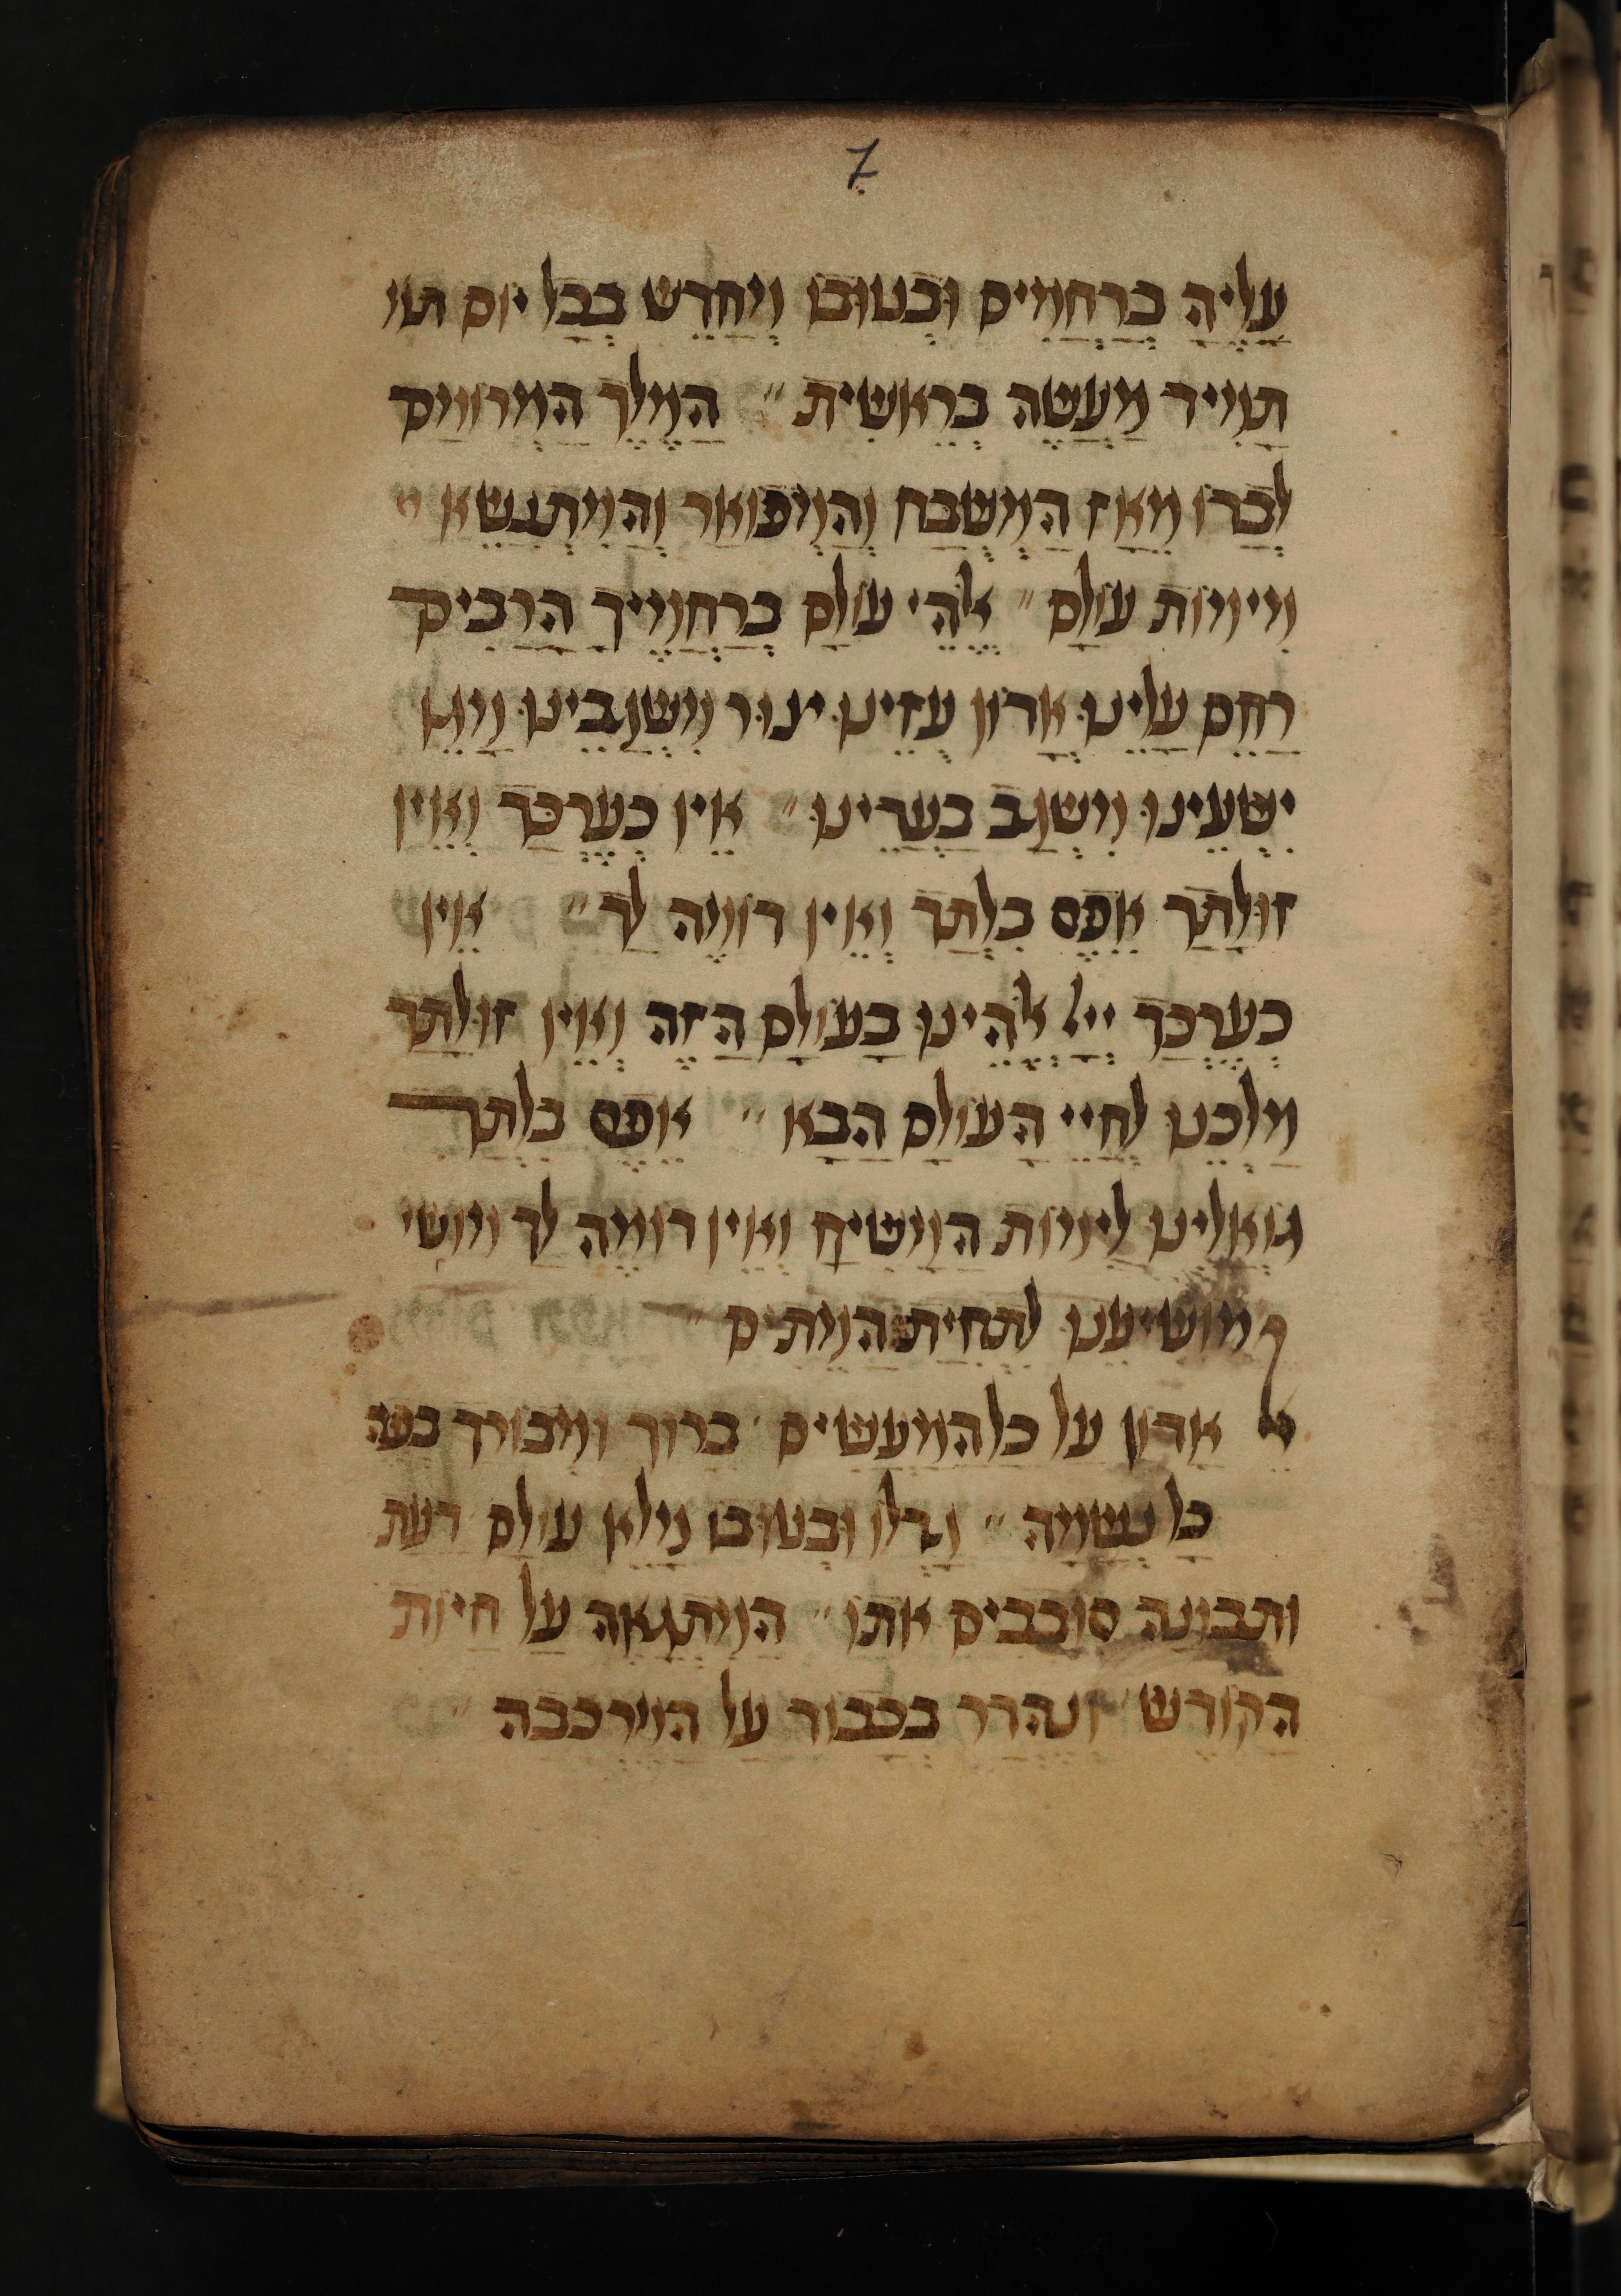 7
עָלֶיהָ בְּרַחֲמִים וּבְטוּבוֹ וְיחַדֵשׁ בְּכָל יום תמ
תָמִיד מַעֲשֶה בְרֵאשִׁית ״ הַמֶלֶך הַמְרוּמָם
לְבַדוֹ מֵאָז הַמְשֻבָח וְהַמְפוֹאָר וְהַמִתְנַשֵא מ
מִימוֹת עוֹלָם ״ אֱלֹהֵי עוֹלָם בְרַחֲמֶיךָ הָרַבִים
רַחֵם עָלֵינוּ אֲדוֹן עֻזֵינוּ צוּר מִשְׂגַבֵינוּ מָגֵן
יִשְׁעֵינוּ מִשְׂגָב בַעֲדֵינוּ ״ אֵין כְעֶרְכָּךְ וְאֵין
זוּלָתָךְ אֶפֶס בִלְתָךְ וְאֵין דוֹמֶה לָךְ ״ אֵין
כְעֶרְכָךְ יְיָ אֱלֹהֵינוּ בָעוֹלָם הַזֶה וְאֵין זוּלָתָךְ
מַלְכֵנוּ לְחַיֵי הָעוֹלָם הַבָא ״ אֶפֶס בִלְתָךְ
גוֹאֲלֵינוּ לִימוֹת הַמָשִׁיחַ וְאֵין דוֹמֶה לָךְ מושי
מושיעֵנוּ לִתְחִיַת הַמֵתִים ״
אֵל אָדוֹן עַל כל המַעֲשִים ׳ בָרוּך ומְבורָך בפה
כָל נְשָמָה ״ גָדְלוֹ וּבְטוּבוֹ מָלֵא עוֹלָם דַעַת
וּתבוּנָה סוֹבְבִים אתוֹ ״ הַמִתְגָאֶה עַל חַיוֹת
הַקוֹדֶשׁ ׳ ונֶהְדַר בְכָבוֹד עַל הַמֶירכָבה ״